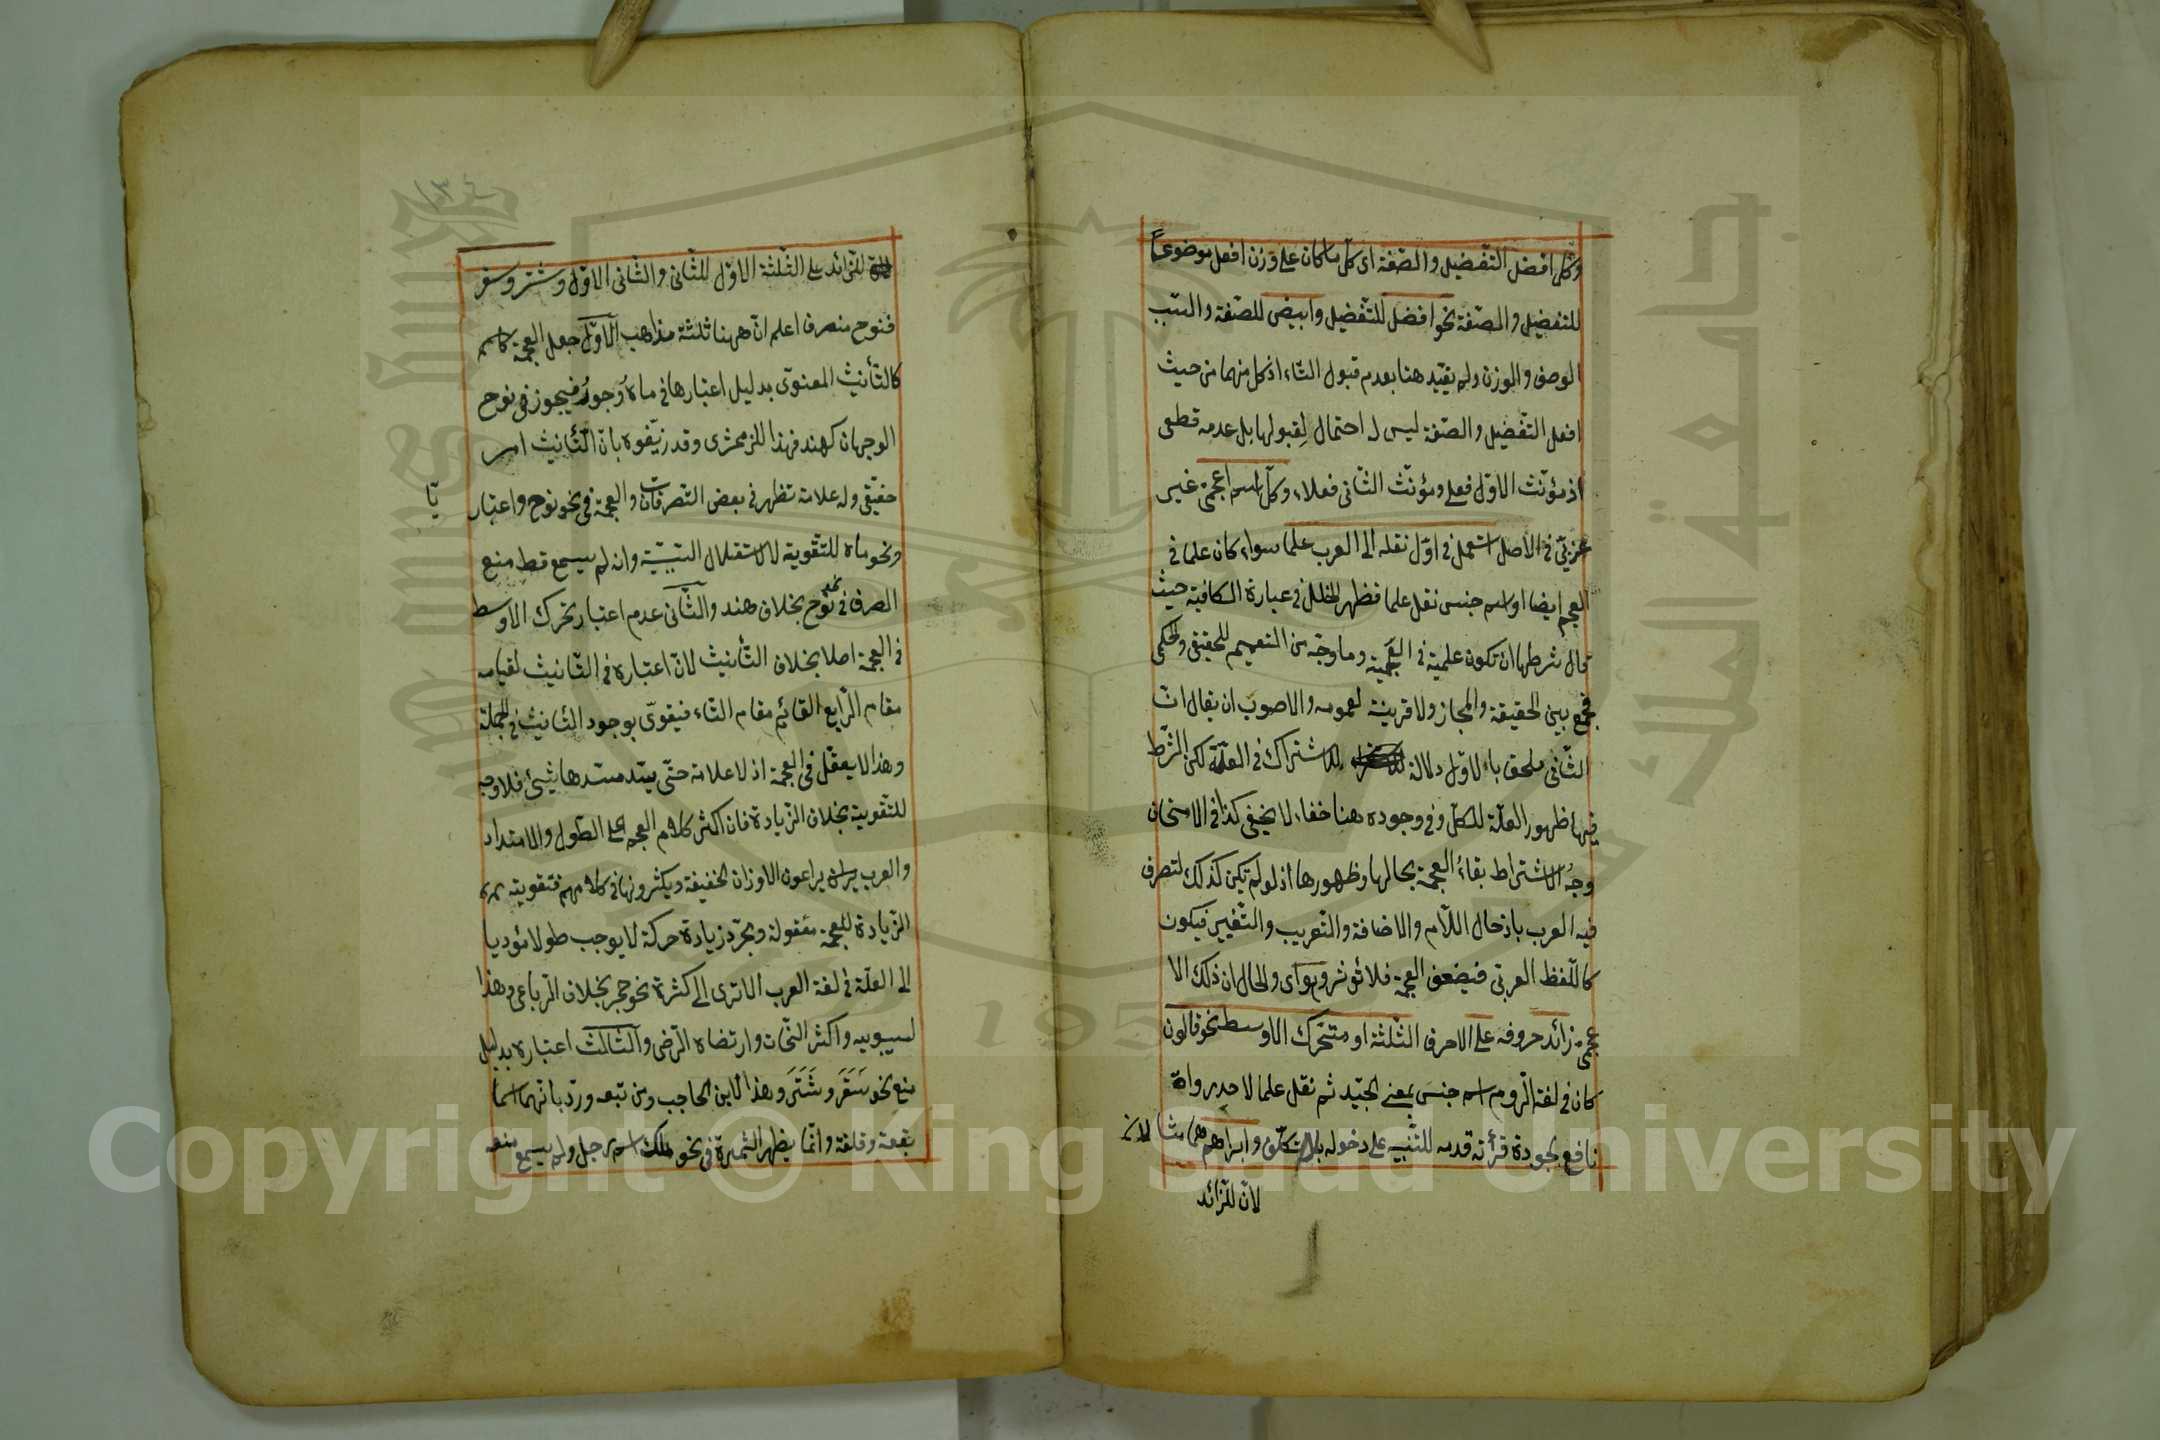 وكل افضل التفضيل والصفة اى كل ما كان على وزن افعل موضوعا
للتفضيل والصفة نحو افضل للتفضيل وابيض للصفة والسبب
الوصف والوزن ولم يقيد هنا بعدم قبول التاء اذ كل منهما من حيث
افعل التفضيل والصفة ليس له احتمال لقبولها بل عدمه قطعى
اذ مؤنث الاول فعلى ومؤنث الثانى فعلاء وكل اسم اعجمى غير
عربى فى الاصل استعمل فى اول نقله الى العرب علما سواء كان علما فى
العجم ايضا او اسم جنس نقل علما فظهر الخلل فى عبارة الكافية حيث
قال شرطها ان تكون علمية فى العجمية وما وجه من التعميم للحقيقى والحكمى
فجمع بين الحقيقة والمجاز ولا قرينة لعمومه والاصوب ان يقال ان
الثانى ملحق بالاول دلالة للاشتراك فى العلة لكن الشرط
فيها ظهور العلة للكل وفى وجوده هنا خفاء لا يخفى كذا فى الامتحان
وجه الاشتراط بقاء العجمة بحالها وظهورها اذ لو لم تكن كذلك لتصرف
فيه العرب بادخال اللام والاضافة والتعريب والتغيير فيكون
كاللفظ العربى فيضعف العجمة فلا تؤثر وهو اى والحال ان ذلك الا
عجمى زائد حروفه على الاحرف الثلثة او متحرك الاوسط نحو قالون
كان فى لغة الروم اسم جنس بمعنى الجيد ثم نقل علما لاحد رواة
نافع لجودة قرأته قدمه للتنبيه على دخوله بلا تكلف وابراهيم
لان للزائد
للزائد على الثلثة الاول للثانى والثانى الاول وشتر وسقر
فنوح منصرف اعلم ان ههنا ثلثة مذاهب الاول جعل العجمة
كالتأنيث المعنوى بدليل اعتبارها فى ماه وجور فيجوز فى نوح
الوجهان كهند فهذا للزمخشرى وقد زيفوه بان التأنيث امر
حقيقى وله علامة تظهر فى بعض التصرفات والعجمة فى نحو نوح واعتبار
ونحو ماه للتقوية لا لاستقلال السببية وانه لم يسمع قط منع
الصرف فى نحو نوح بخلاف هند والثانى عدم اعتبار تحرك الاوسط
فى العجمة اصلا بخلاف التأنيث لان اعتباره فى التأنيث لقيامه
مقام الرابع القائم مقام التاء فيقوى بوجود التأنيث فى الجملة
وهذا لا يعقل فى العجمة اذ لا علامة حتى يسد مسدها شيئ فلا وجه
للتقوية بخلاف الزيادة فان اكثر كلام العجم على الطول والامتداد
والعرب يراعون الاوزان الخفيفة ويكثرونها فى كلامهم فتقوية
الزيادة للعجمة معقولة ومجرد زيادة حركة لا يوجب طولا مؤديا
الى العلة فى لغة العرب الا ترى الى كثرة نحو حجر بخلاف الرباعى وهذا
لسيبويه واكثر النحات وارتضاه الرضى والثالث اعتباره بدليل
منع نحو سقر وشتر وهذا لابن الحاجب ومن تبعه ورد بانهما اسما
بقعة وقلعة وانما يظهر الثمرة فى نحو لمك اسم رجل ولم يسمع منعه
Copyright © King Saud University
جامعة الملك سعود
King Saud University
195
١٣٤